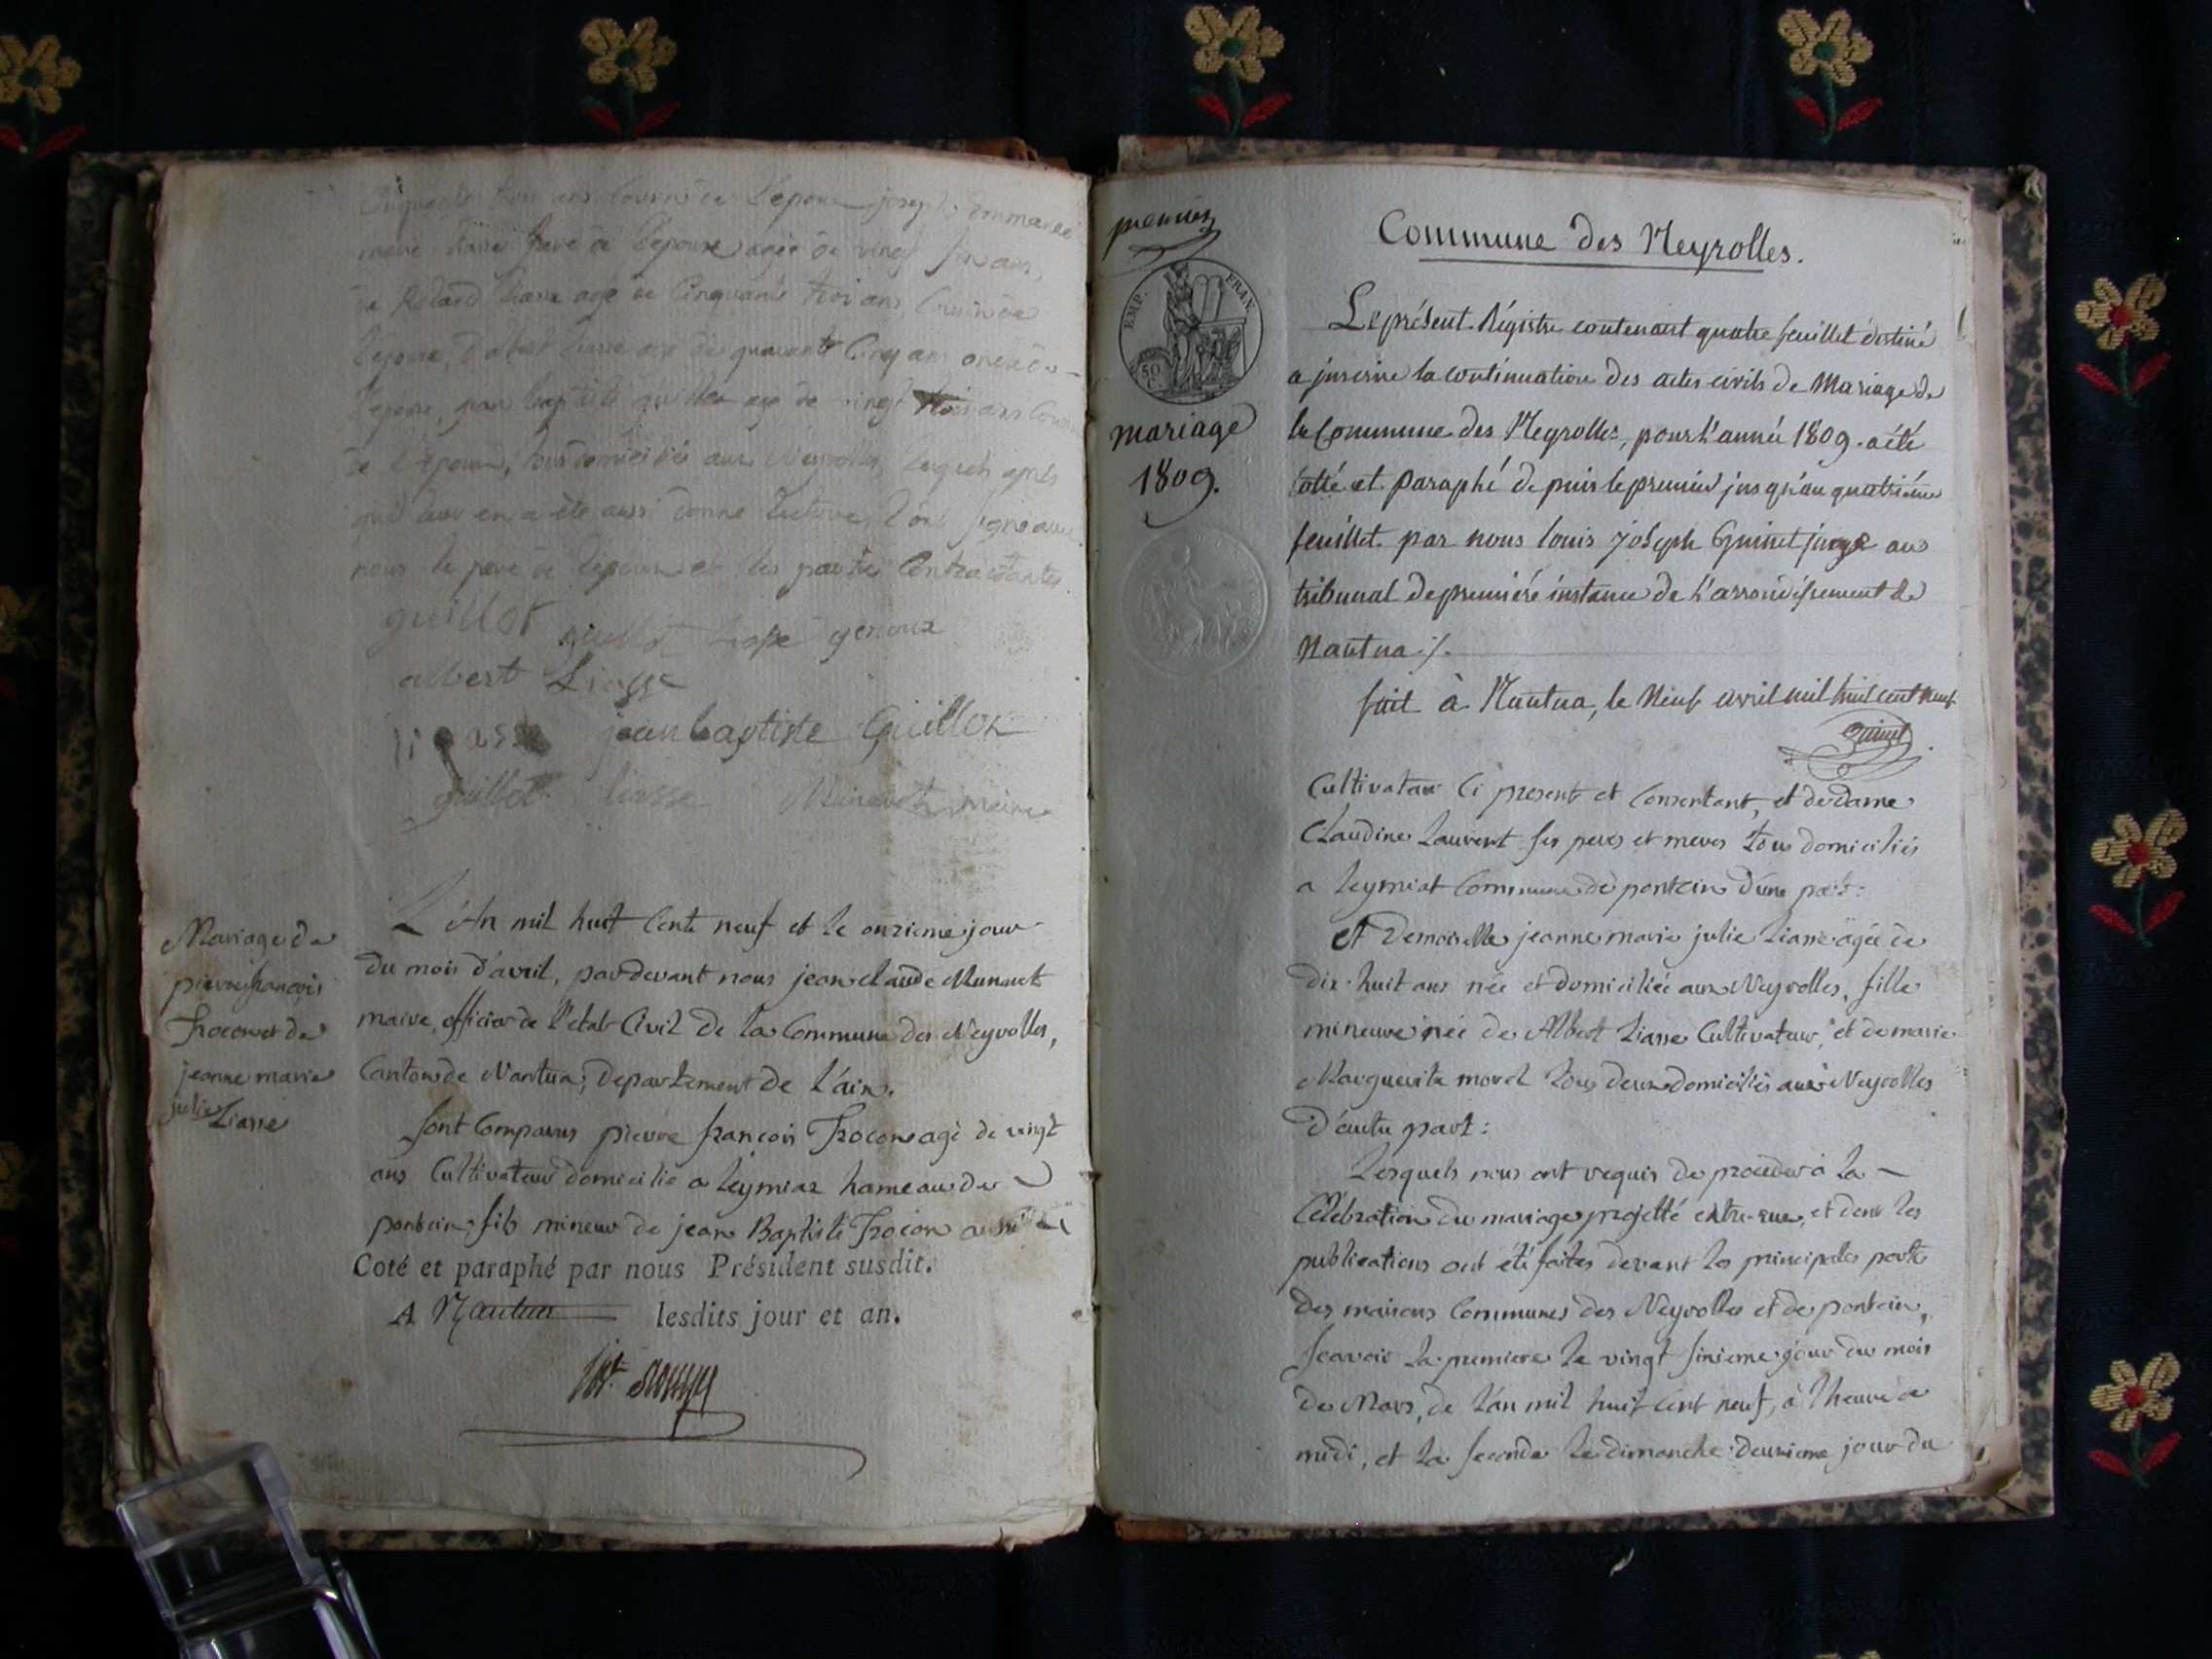 cinquante trois ans cousin de l'epoux joseph Emmanuel
marie Liasse frere de l'epouse agée de vingt six ans,
de Liasse agé de Cinquante trois ans, Cousin de
l'epouse, d'albert Liasse agé de quarante Cinq ans oncle de
l'epouse, jean baptiste guillot agé de vingt trois ans Cousin
de l'epoux, tous domiciliés aux Neyrolles, lesquels après
qu'il leur en a été aussi donné lecture, l'ont signé avec
nous le pere de l'epoux et les partie Contractantes
guillot guillot Liasse genoux
albert Liasse
liasse jean baptiste Guillot
guillot liasse Munavet maire
Mariage de
pierre françois
Trocon et de
jeanne marie
julie Liasse
L'An mil huit Cent neuf et le onzieme jour
du mois d'avril, pardevant nous jean claude Munavet
maire, officier de l'etat Civil de la Commune des Neyrolles,
Canton de Nantua, Departement de l'ain.
Sont Comparus pierre françois Trocon agé de vingt
ans Cultivateur domicilié a leymiat hameau de
poncin fils mineur de jean Baptiste Trocon aussi
Coté et paraphé par nous Président susdit.
A Nantua lesdits jour et an.
premier
EMP. FRAN.
50 C.
mariage
1809.
Commune des Neyrolles.
Le présent Régistre contenant quatre feuillet destiné
a inscrire la continuation des actes civils de Mariage de
la Commune des Neyrolles, pour l'année 1809. a été
cotté et paraphé depuis le premier jusqu'au quatrième
feuillet par nous louis joseph Guinet juge au
tribunal de première instance de l'arrondissement de
Nantua ./.
fait à Nantua, le Neuf avril mil huit cent neuf
Guinet
Cultivateur Ci present et Consentant, et de dame
Claudine Laurent ses peres et meres tous domiciliés
a leymiat Commune de poncin d'une part:
et Demoiselle jeanne marie julie Liasse agée de
dix-huit ans née et domiciliée aux Neyrolles, fille
mineure née de Albert Liasse Cultivateur, et de marie
Marguerite morel tous deux domiciliés aux Neyrolles
d'autre part:
Lesquels nous ont requis de proceder à la
Célébration du mariage projetté entre-eux, et dont les
publications ont été faites devant les principales porte
des maisons Communes des Neyrolles et de poncin,
Scavoir la premiere le vingt sixieme jour du mois
de Mars, de l'an mil huit Cent neuf, à l'heure de
midi, et la seconde le dimanche deuxieme jour du